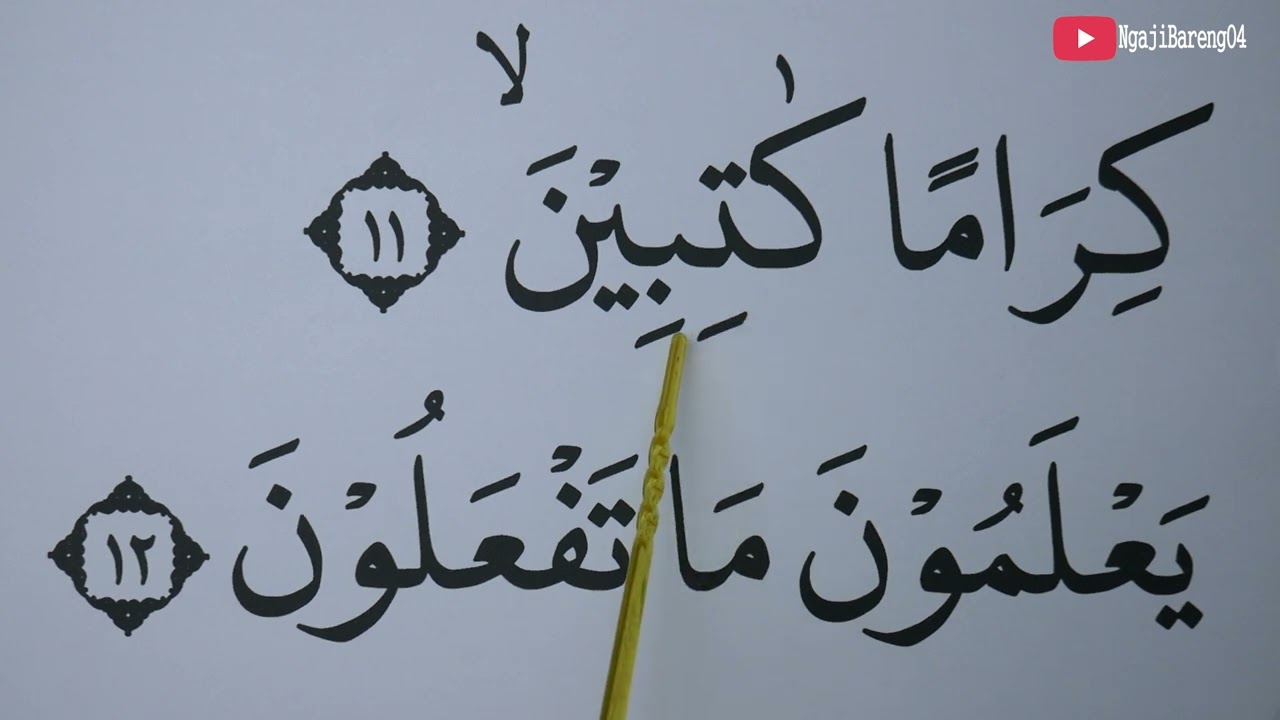 NgajiBareng04
كِرَامًا كٰتِبِيْنَۙ ١١
يَعْلَمُوْنَ مَا تَفْعَلُوْنَ ١٢